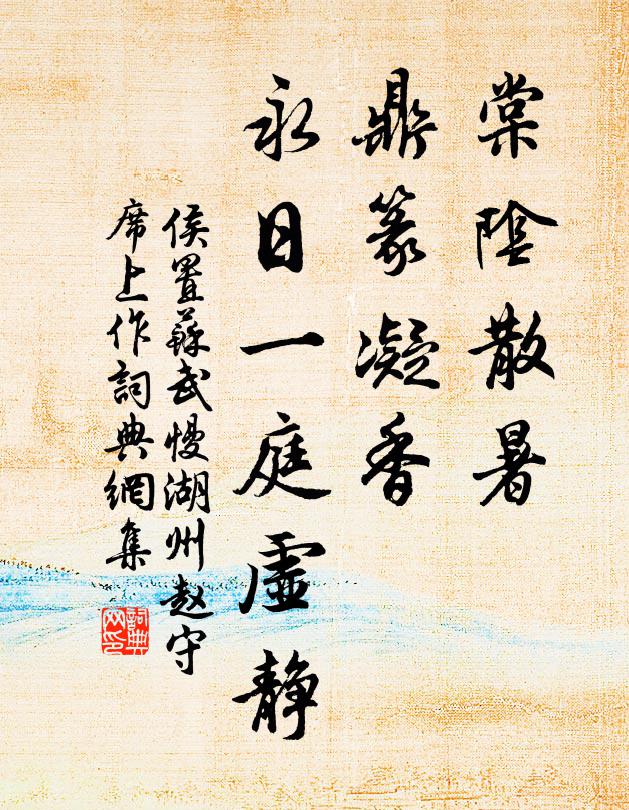 棠陰散暑
鼎篆凝香
永日一庭虛静
侯置蘇武慢湖州赵守
席上作詞典網集
詞典网印